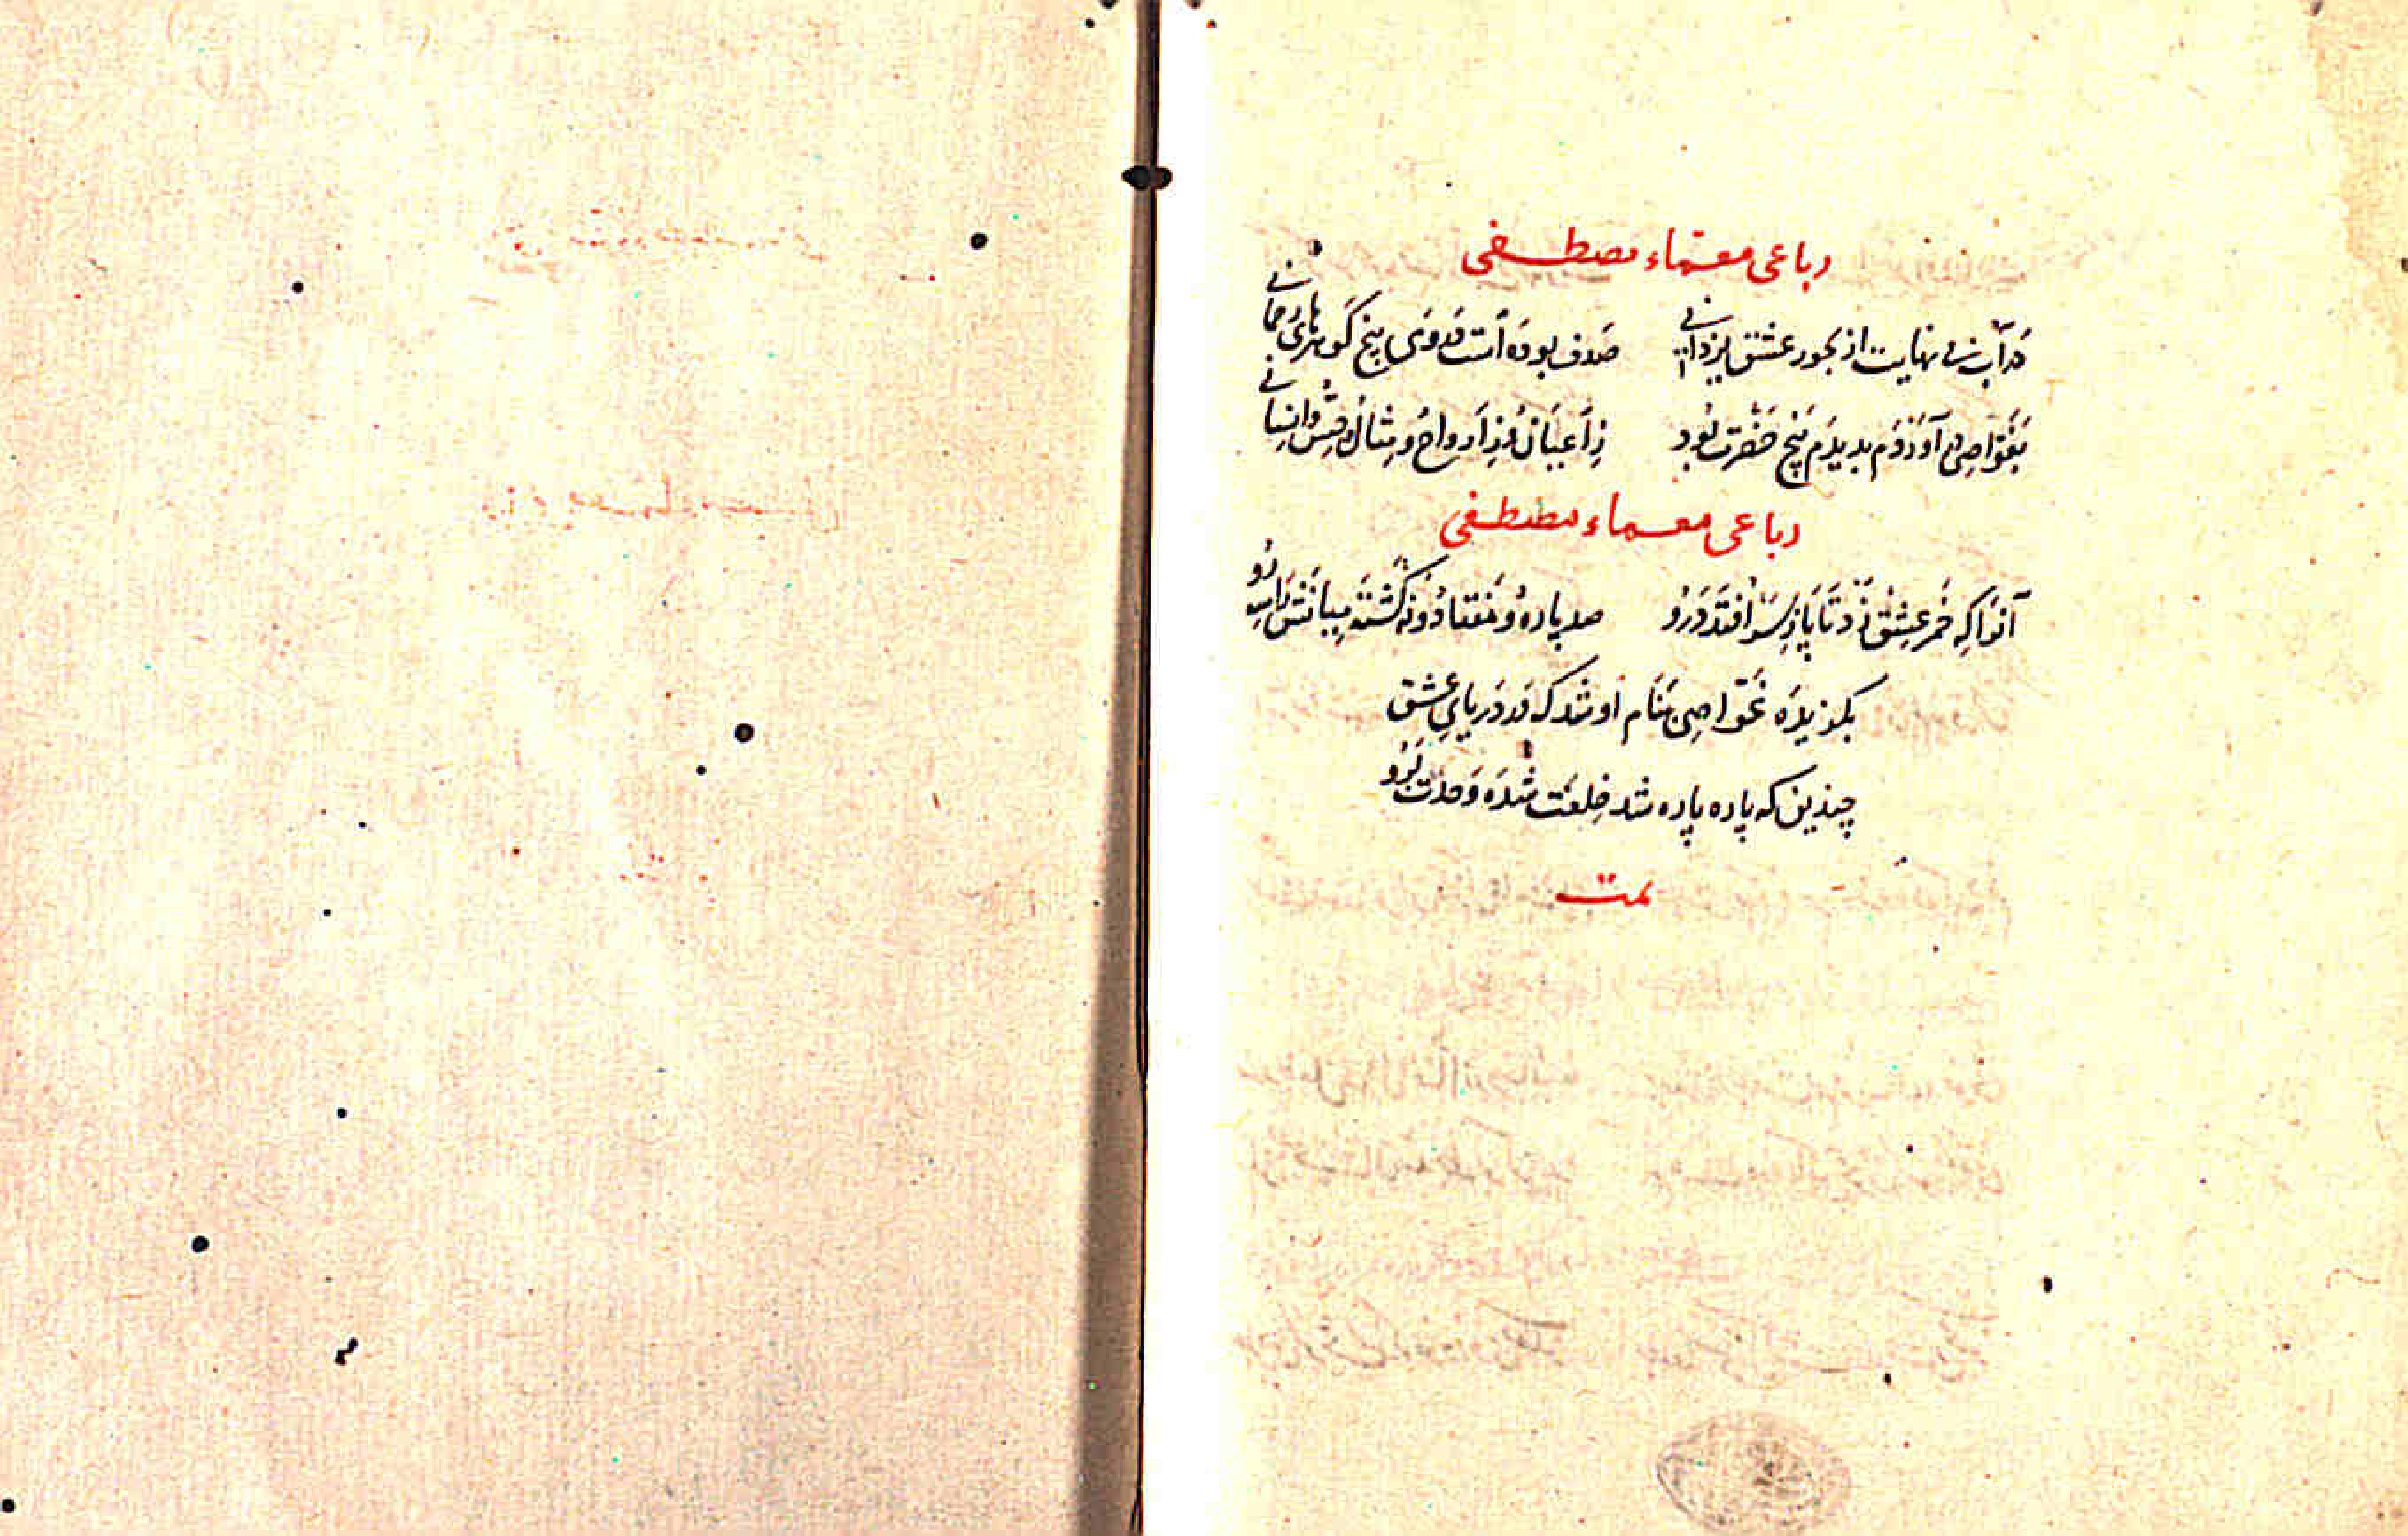 رباعی معمّاء مصطفی
دَر آب بی نهایت از بحور عشق یزدانی صَدف بودَه اَست دَر وَی پنج گَوهرهای رَحمانی
بَغَوّاصی آوَردَم بدیدَم پَنج حَضرت بُود زِ اَعیان وُ زِ اَرواح وُ مِثال وُ حِسّ وُ اِنسانی
رباعی معماء مصطفی
آنرَا کِه خَمرِ عِشق زَد تَا پَا زِ سَر اُفتَد دَرُو صد پاره وُ هَفتاد وُ نُه گَشتَه مِیانَش رَاسِ تُو
بکزیدَه غَوّاصی بَنَام او شد که دَر دَریایِ عشق
چندین که پاره پاره شد خِلعَت شُدَه وَحدَت بَرُو
تمت